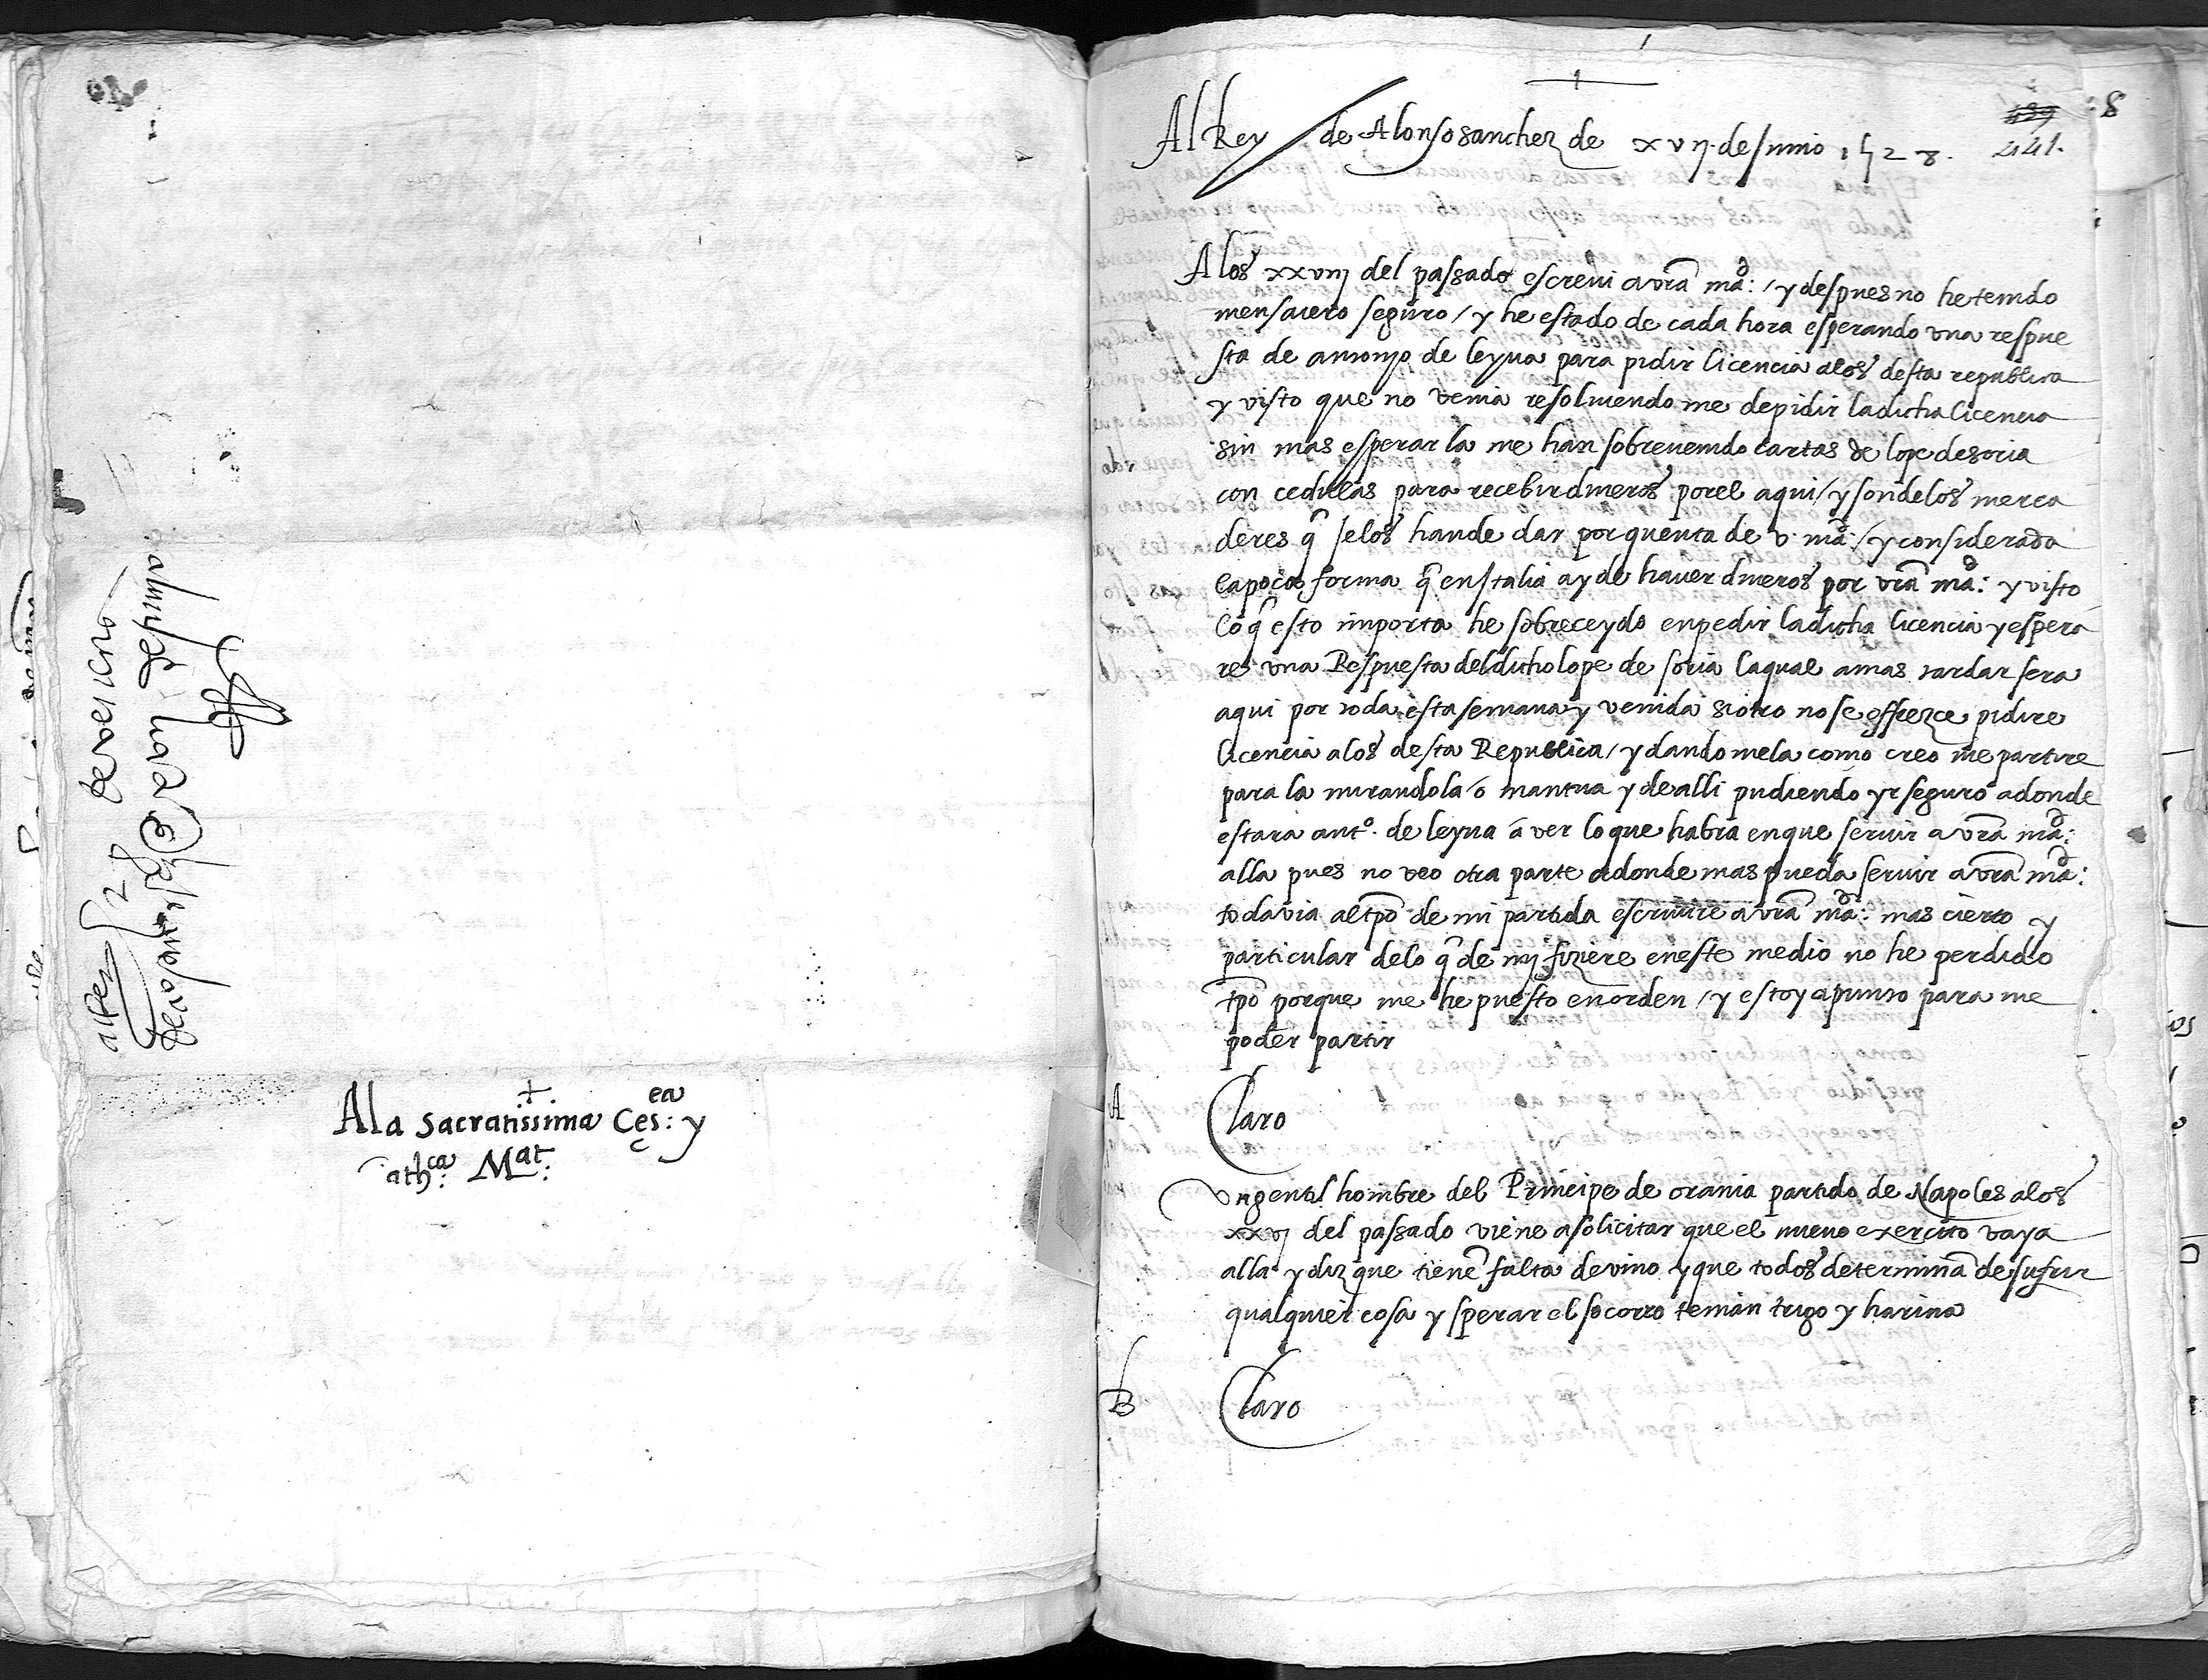 Ala sacratissima Ces:ea y
cath:ca Mat:
+
Al Rey de Alonso sanchez de xvij. de Junio 1528.
441.
A los xxviij del passado escreui a vra mad: / y despues no he tenido
mensaiero seguro / y he estado de cada hora esperando vna respue
sta de antonjo de leyua para pidir licencia a los desta republica
y visto que no venia resoluiendo me de pidir la dicha licencia
sin mas esperar la me han sobreuenido cartas de lope de soria
con cedulas para recebir dineros por el aqui / y son de los merca
deres q̃ se los han de dar por quenta de v. mad: / y considerada
la poca forma q̃ en Italia ay de hauer dineros por vra mad: y visto
lo q̃ esto importa he sobreceydo en pedir la dicha licencia y espera
re vna Respuesta del dicho lope de soria la qual a mas tardar sera
aqui por toda esta semana y venida si otro no se offrezce pidire
licencia a los desta Republica / y dando me la como creo me partire
para la mirandola o mantua y de alli pudiendo yr seguro a donde
estara anto. de leyua a ver lo que habra en que seruir a vra mad:
alla pues no veo otra parte adonde mas pueda seruir a vra mad:
todavia al tpo de mi partida escriuire a vra mad: mas cierto y
particular de lo q̃ de mj fiziere en este medio no he perdido
tpo porque me he puesto en orden / y estoy a punto para me
poder partir
A Claro
Vn gentil hombre del Principe de orania partido de Napoles a los
xxvj del passado viene a solicitar que el nueuo exercito vaya
alla y diz que tienẽ falta de vino y que todos determinã de sufrir
qualquier cosa y sperar el socorro tenian trigo y harina
B Claro